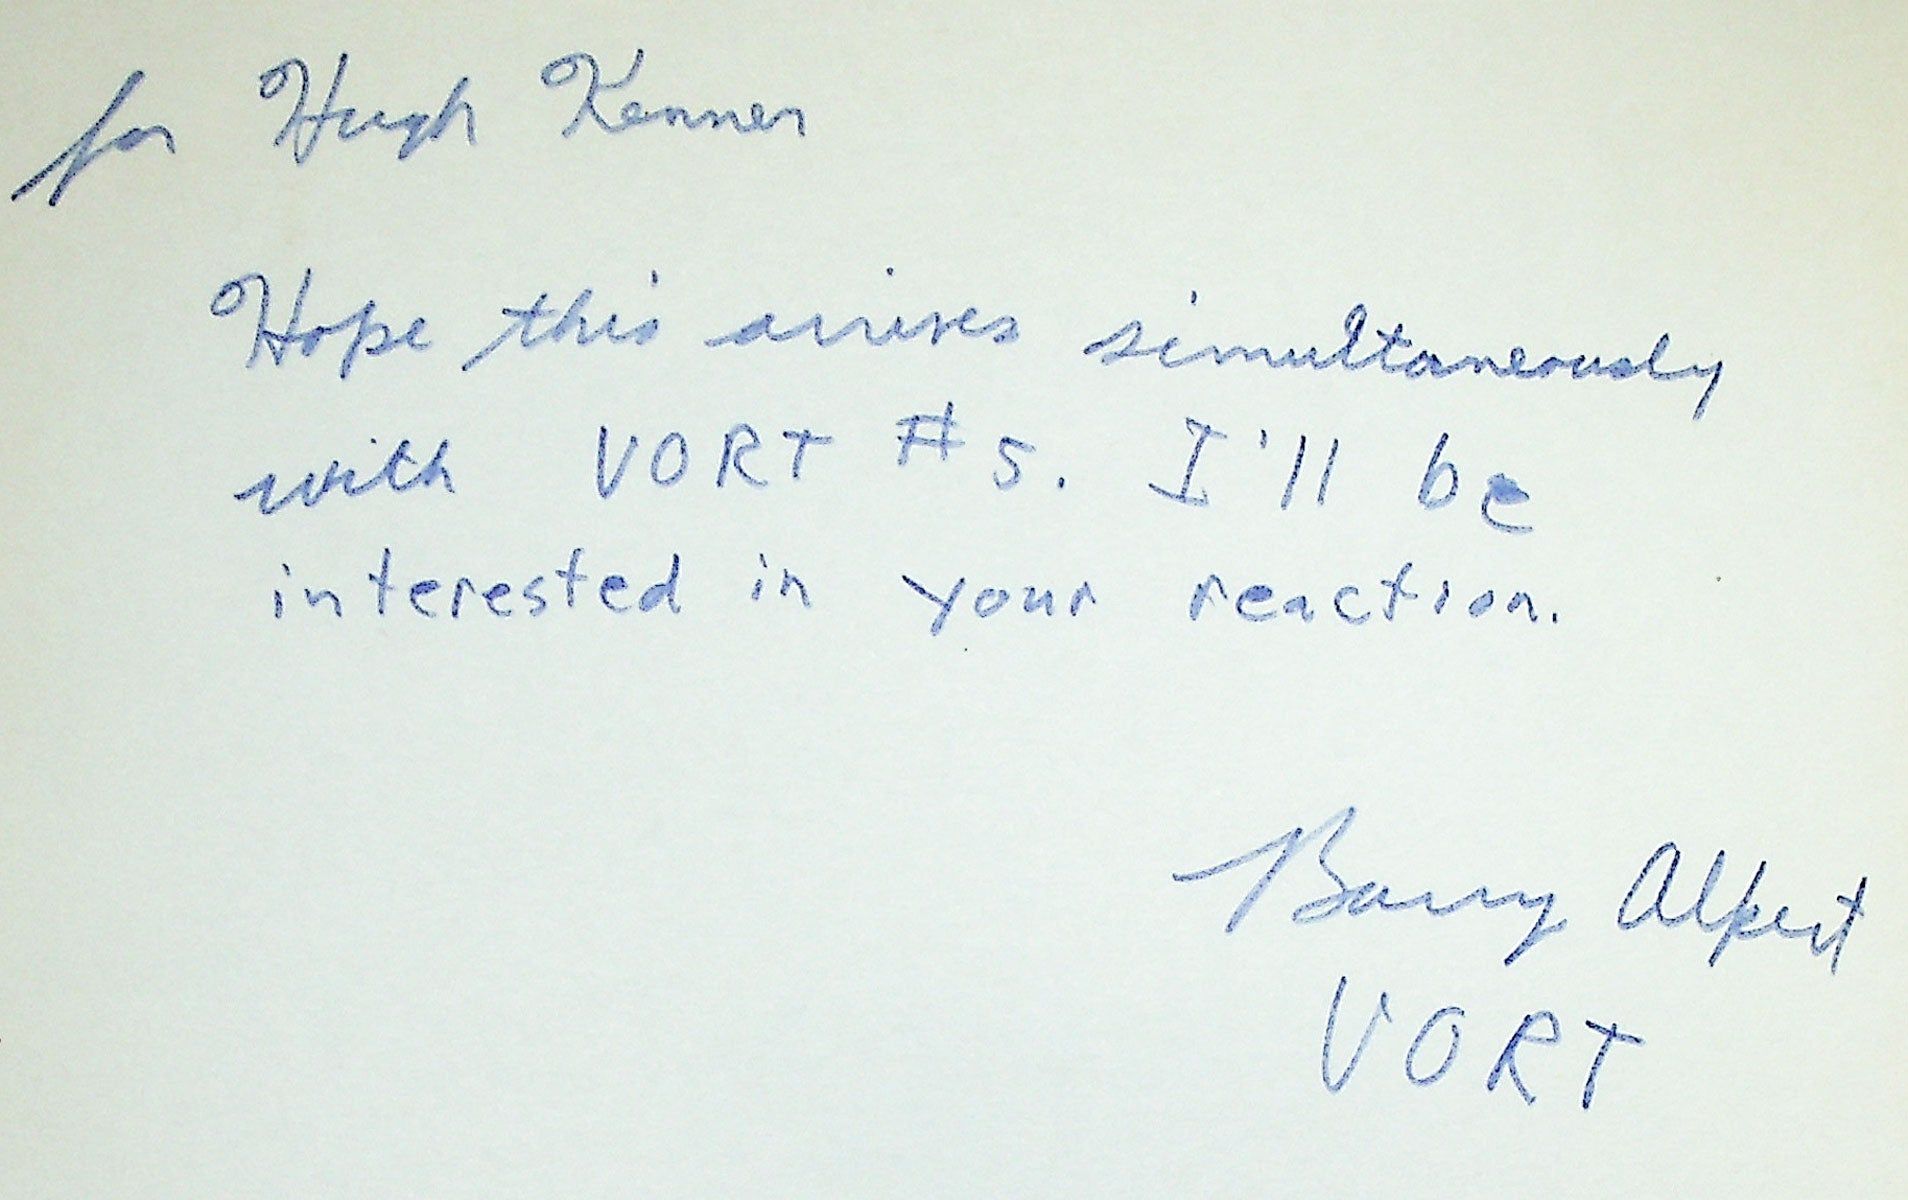 for Hugh Kenner
Hope this arrives simultaneously
with VORT #5. I'll be
interested in your reaction.
Barry Alpert
VORT